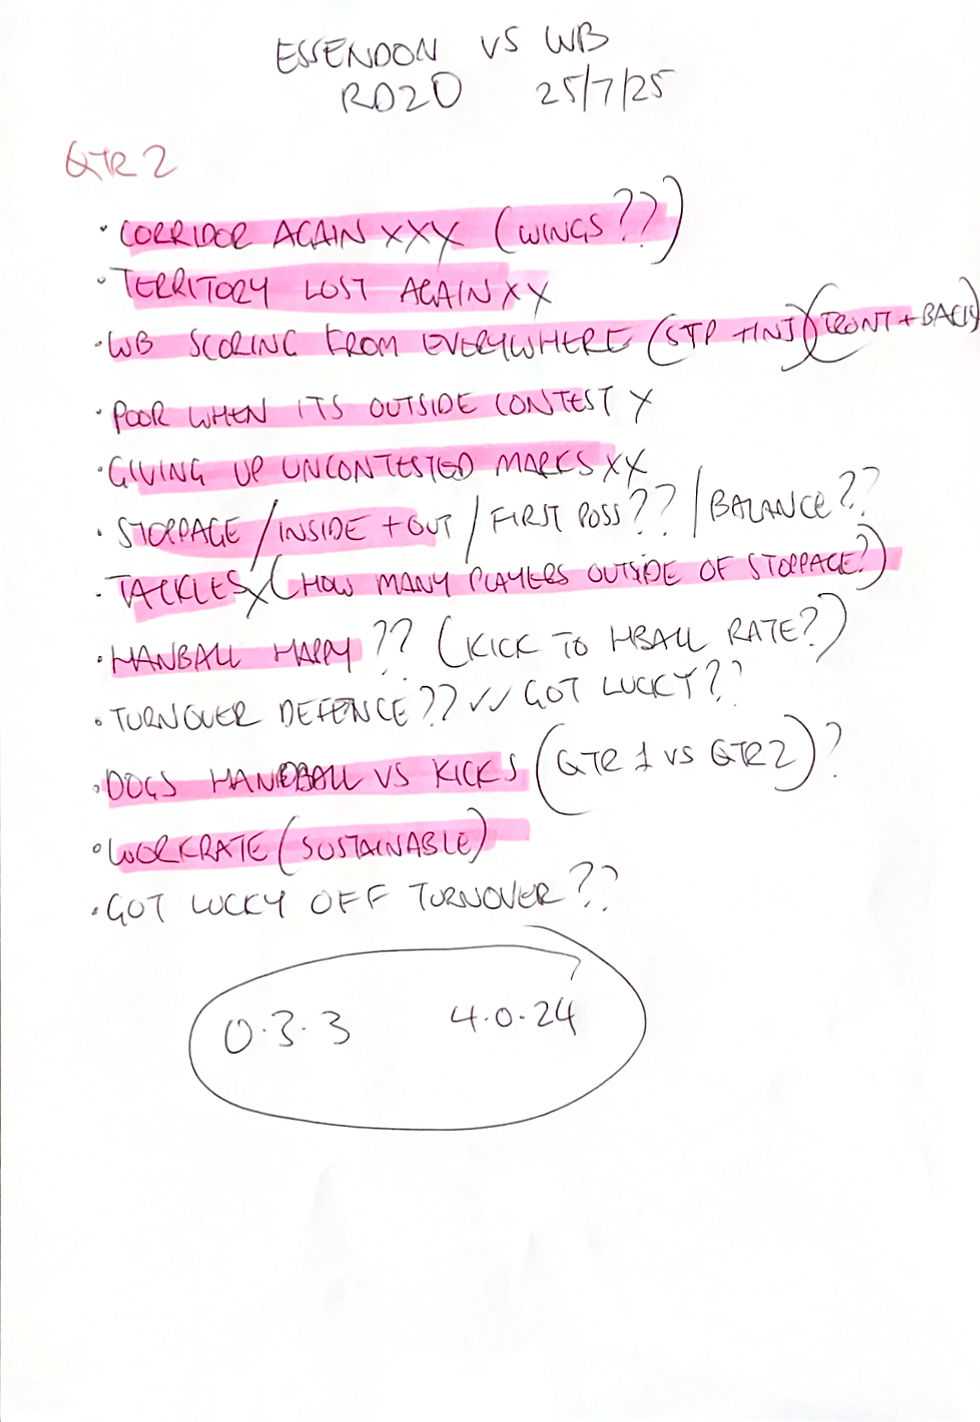 ESSENDON VS WB
RD20 25/7/25
QTR 2
• CORRIDOR AGAIN XXX (WINGS??)
• TERRITORY LOST AGAIN XX
• WB SCORING FROM EVERYWHERE (STP + INT) (FRONT + BACK)
• POOR WHEN ITS OUTSIDE CONTEST X
• GIVING UP UNCONTESTED MARKS XX
• STOPPAGE / INSIDE + OUT / FIRST POSS?? / BALANCE??
• TACKLES X (HOW MANY PLAYERS OUTSIDE OF STOPPAGE?)
• HANBALL HAPPY ?? (KICK TO HBALL RATE?)
• TURNOVER DEFENCE?? ✓✓ GOT LUCKY??
• DOGS HANDBALL VS KICKS (QTR 1 VS QTR 2)?
• WORKRATE (SUSTAINABLE)
• GOT LUCKY OFF TURNOVER??
0.3.3 4.0.24